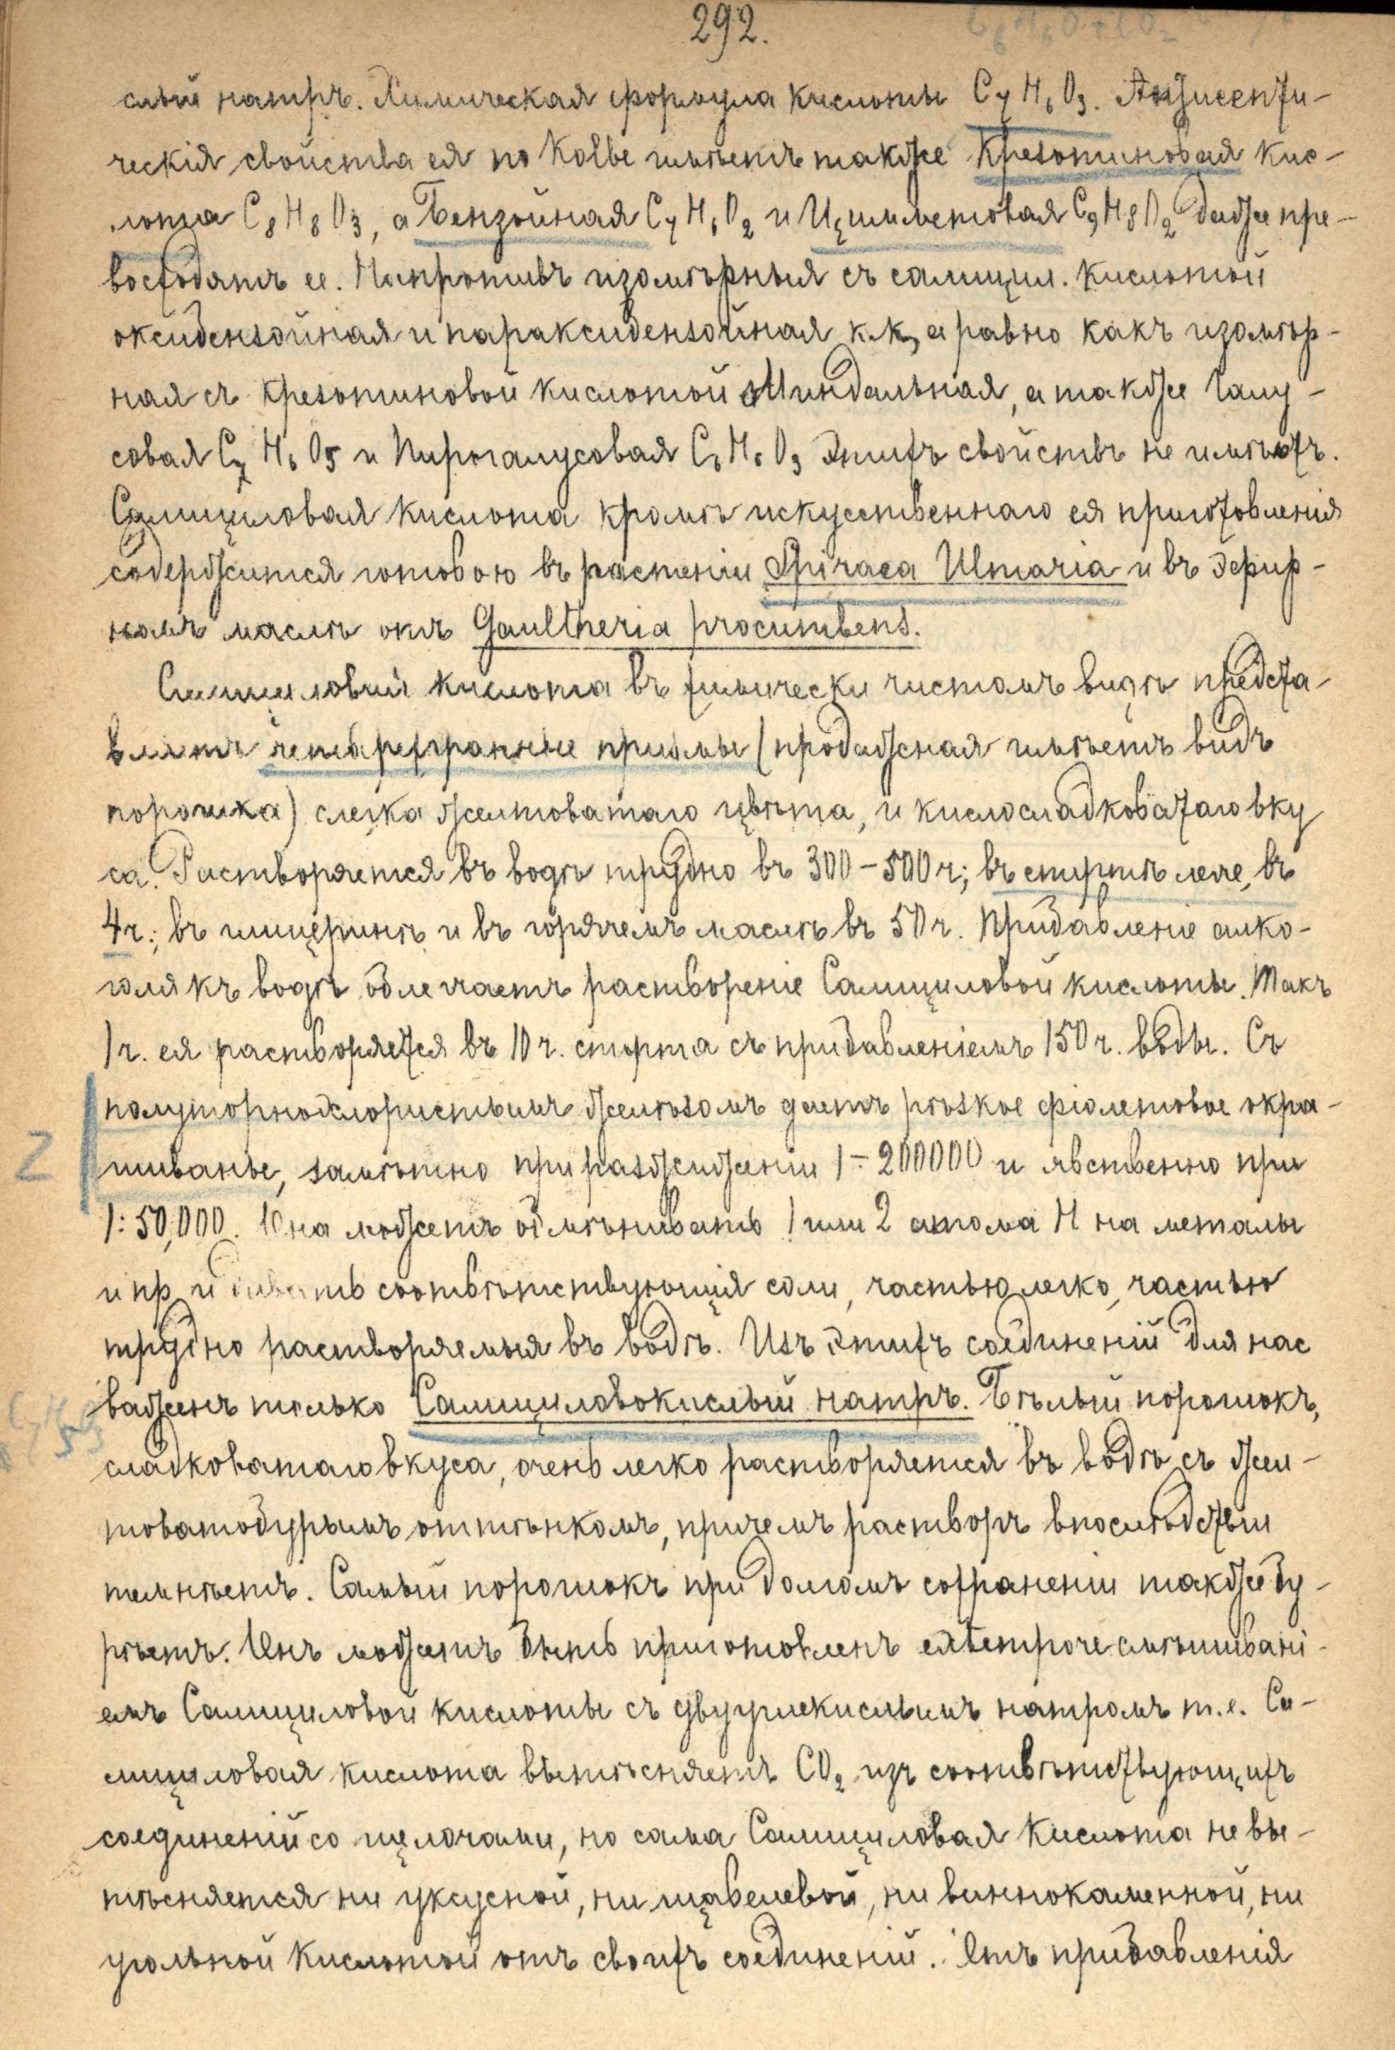 292.
слый натръ. Химическая формула кислоты C7 H6 O3. Антисепти-
ческія свойства ея по Kolbe имѣетъ также Крезотиновая кис-
лота C8 H8 O3, а Бензойная C7 H6 O2 и Циминетовая C9 H8 O2 даже пре-
восходятъ ее. Напротивъ изомѣрныя съ салицил. кислотой
оксибензойная и параксибензойная к.к., а равно какъ изомѣр-
ная съ крезотиновой кислотой Миндальная, а также Галу-
совая C7 H6 O5 и Пирогалусовая C6 H6 O3 этихъ свойствъ не имѣютъ.
Салициловая кислота кромѣ искусственнаго ея приготовленія
содержится готовою въ растеніи Spiraea Ulmaria и въ эфир-
номъ маслѣ отъ Gaultheria procumbens.
Салициловая кислота въ химически чистомъ видѣ предста-
вляетъ четырехгранные призмы (продажная имѣетъ видъ
порошка) слегка желтоватаго цвѣта, и кислосладковатаго вку
са. Растворяется въ водѣ трудно въ 300-500 ч; въ спиртѣ легче, въ
4 ч.; въ глицеринѣ и въ горячемъ маслѣ въ 50 ч. Придавленіе алко-
голя къ водѣ облегчаетъ раствореніе Салициловой кислоты. Такъ
1 ч. ея растворяется въ 10 ч. спирта съ придавленіемъ 150 ч. воды. Съ
полуторнохлористымъ желѣзомъ даетъ рѣзкое фіолетовое окра-
шиванье, замѣтно при разжиженіи 1 ÷ 200000 и явственно при
1: 50,000. Она можетъ обмѣнивать 1 или 2 атома H на металы
и пр и давать соотвѣтствующія соли, частью легко, частью
трудно растворяемыя въ водѣ. Изъ этихъ соединеній для нас
важенъ только Салициловокислый натръ. Бѣлый порошокъ,
сладковатаго вкуса, очень легко растворяется въ водѣ съ жел-
товатобурымъ оттѣнкомъ, причемъ растворъ впослѣдствіи
темнѣетъ. Самый порошокъ при долгомъ сохраненіи также бу-
рѣетъ. Онъ можетъ быть приготовленъ ex tempore смѣшивані-
емъ Салициловой кислоты съ двууглекислымъ натромъ т.е. Са-
лициловая кислота вытѣсняетъ CO2 изъ соотвѣтствующихъ
соединеній со щелочами, но сама Салициловая Кислота не вы-
тѣсняется ни уксусной, ни щавелевой, ни виннокаменной, ни
угольной Кислотой отъ своихъ соединеній. Отъ придавленія